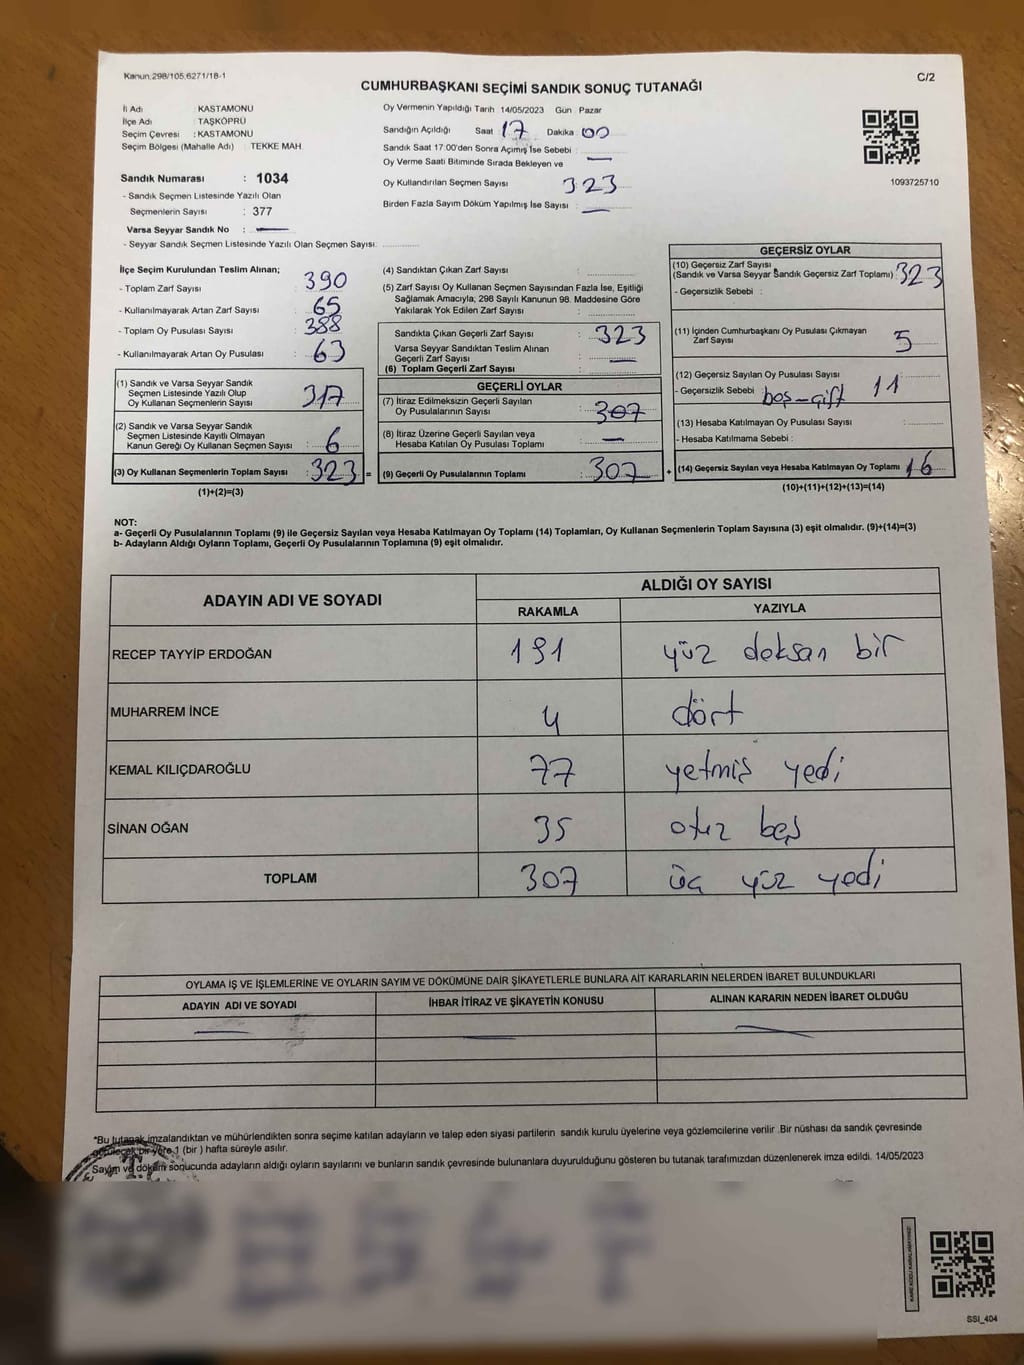 Kanun:298/105,6271/18-1
C/2
CUMHURBAŞKANI SEÇİMİ SANDIK SONUÇ TUTANAĞI
İl Adı : KASTAMONU
İlçe Adı : TAŞKÖPRÜ
Seçim Çevresi : KASTAMONU
Seçim Bölgesi (Mahalle Adı) TEKKE MAH.
Sandık Numarası : 1034
- Sandık Seçmen Listesinde Yazılı Olan
Seçmenlerin Sayısı : 377
Varsa Seyyar Sandık No : —
- Seyyar Sandık Seçmen Listesinde Yazılı Olan Seçmen Sayısı:
Oy Vermenin Yapıldığı Tarih 14/05/2023 Gün : Pazar
Sandığın Açıldığı Saat 17 Dakika : 00
Sandık Saat 17:00'den Sonra Açımış İse Sebebi : —
Oy Verme Saati Bitiminde Sırada Bekleyen ve
Oy Kullandırılan Seçmen Sayısı 323
Birden Fazla Sayım Döküm Yapılmış İse Sayısı : —
1093725710
İlçe Seçim Kurulundan Teslim Alınan;
- Toplam Zarf Sayısı : 390
- Kullanılmayarak Artan Zarf Sayısı : 65
- Toplam Oy Pusulası Sayısı : 388
- Kullanılmayarak Artan Oy Pusulası : 63
(1) Sandık ve Varsa Seyyar Sandık
Seçmen Listesinde Yazılı Olup
Oy Kullanan Seçmenlerin Sayısı : 317
(2) Sandık ve Varsa Seyyar Sandık
Seçmen Listesinde Kayıtlı Olmayan
Kanun Gereği Oy Kullanan Seçmen Sayısı : 6
(3) Oy Kullanan Seçmenlerin Toplam Sayısı : 323 =
(1)+(2)=(3)
(4) Sandıktan Çıkan Zarf Sayısı :
(5) Zarf Sayısı Oy Kullanan Seçmen Sayısından Fazla İse, Eşitliği
Sağlamak Amacıyla; 298 Sayılı Kanunun 98. Maddesine Göre
Yakılarak Yok Edilen Zarf Sayısı :
Sandıkta Çıkan Geçerli Zarf Sayısı : 323
Varsa Seyyar Sandıktan Teslim Alınan
Geçerli Zarf Sayısı : —
(6) Toplam Geçerli Zarf Sayısı :
GEÇERLİ OYLAR
(7) İtiraz Edilmeksizin Geçerli Sayılan
Oy Pusulalarının Sayısı : 307
(8) İtiraz Üzerine Geçerli Sayılan veya
Hesaba Katılan Oy Pusulası Toplamı : —
(9) Geçerli Oy Pusulalarının Toplamı : 307 +
GEÇERSİZ OYLAR
(10) Geçersiz Zarf Sayısı
(Sandık ve Varsa Seyyar Sandık Geçersiz Zarf Toplamı) : 323
- Geçersizlik Sebebi :
(11) İçinden Cumhurbaşkanı Oy Pusulası Çıkmayan
Zarf Sayısı : 5
(12) Geçersiz Sayılan Oy Pusulası Sayısı : 11
- Geçersizlik Sebebi : boş-çift
(13) Hesaba Katılmayan Oy Pusulası Sayısı :
- Hesaba Katılmama Sebebi :
(14) Geçersiz Sayılan veya Hesaba Katılmayan Oy Toplamı : 16
(10)+(11)+(12)+(13)=(14)
NOT:
a- Geçerli Oy Pusulalarının Toplamı (9) ile Geçersiz Sayılan veya Hesaba Katılmayan Oy Toplamı (14) Toplamları, Oy Kullanan Seçmenlerin Toplam Sayısına (3) eşit olmalıdır. (9)+(14)=(3)
b- Adayların Aldığı Oyların Toplamı, Geçerli Oy Pusulalarının Toplamına (9) eşit olmalıdır.
ADAYIN ADI VE SOYADI
ALDIĞI OY SAYISI
RAKAMLA YAZIYLA
RECEP TAYYİP ERDOĞAN 191 yüz doksan bir
MUHARREM İNCE 4 dört
KEMAL KILIÇDAROĞLU 77 yetmiş yedi
SİNAN OĞAN 35 otuz beş
TOPLAM 307 üç yüz yedi
OYLAMA İŞ VE İŞLEMLERİNE VE OYLARIN SAYIM VE DÖKÜMÜNE DAİR ŞİKAYETLERLE BUNLARA AİT KARARLARIN NELERDEN İBARET BULUNDUKLARI
ADAYIN ADI VE SOYADI İHBAR İTİRAZ VE ŞİKAYETİN KONUSU ALINAN KARARIN NEDEN İBARET OLDUĞU
*Bu tutanak imzalandıktan ve mühürlendikten sonra seçime katılan adayların ve talep eden siyasi partilerin sandık kurulu üyelerine veya gözlemcilerine verilir .Bir nüshası da sandık çevresinde
görülecek bir yere 1 (bir ) hafta süreyle asılır.
Sayım ve döküm sonucunda adayların aldığı oyların sayılarını ve bunların sandık çevresinde bulunanlara duyurulduğunu gösteren bu tutanak tarafımızdan düzenlenerek imza edildi. 14/05/2023
SSI_404